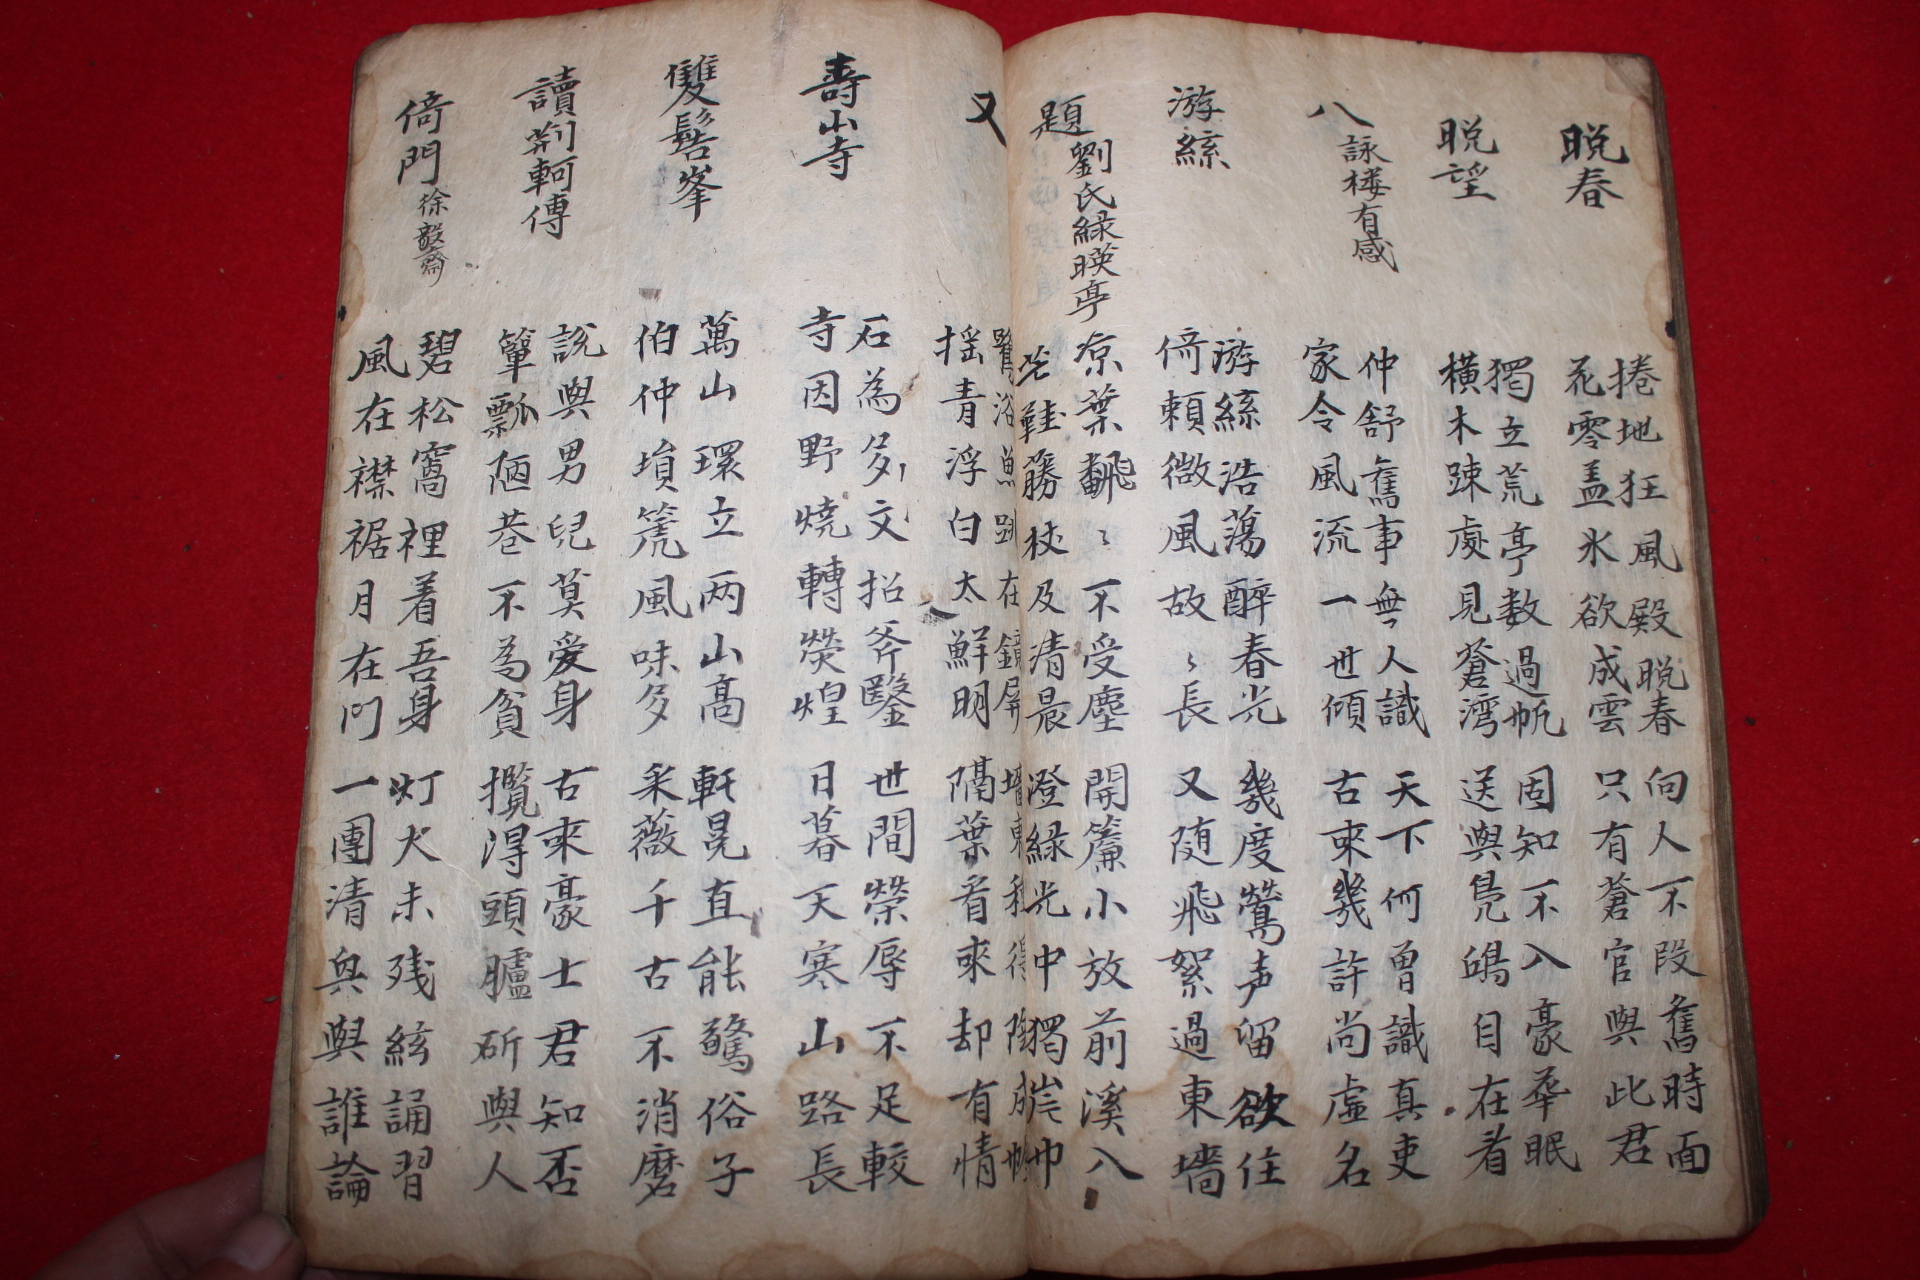 晩春
捲地狂風殿晩春 向人不改舊時面
花零蓋氷欲成雲 只有蒼官與此君
晩望
獨立荒亭数過帆 固知不入豪華眠
横木踈處見蒼湾 送與鳧鴎自在看
八詠楼有感
仲舒舊事無人識 天下何曽識真吏
家令風流一世傾 古来幾許尚虚名
游絲
游絲浩蕩醉春光 幾度鶯声留欲住
倚頼微風故〻長 又随飛絮過東墻
題劉氏緑暎亭
凉葉飜〻不受塵 開簾小放前溪入
芒鞋藤杖及清晨 澄緑光中獨岸巾
又
鷺浴魚跳在鏡屏
揺青浮白太鮮明 隔葉看来却有情
壽山寺
石為多文招斧鑿 世間榮辱不足較
寺因野燒轉熒煌 日暮天寒山路長
雙髻峯
萬山環立两山高 軒冕直能驚俗子
伯仲塤箎風味多 采薇千古不消磨
讀荊軻傳
説與男兒莫愛身 古来豪士君知否
簞瓢陋巷不為貧 攬得頭臚斫與人
倚門 徐毅齋
碧松窩裡着吾身 灯火未残絃誦習
風在襟裾月在門 一團清興與誰論